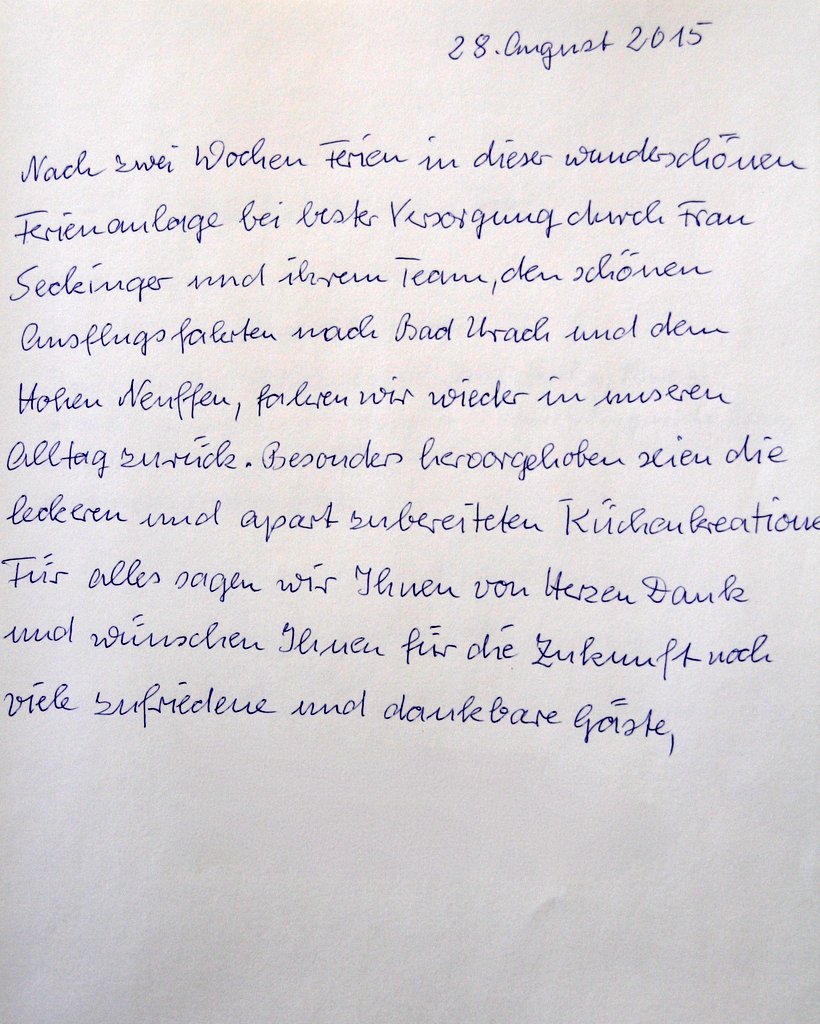 28. August 2015
Nach zwei Wochen Ferien in dieser wunderschönen
Ferienanlage bei bester Versorgung durch Frau
Seckinger und ihrem Team, den schönen
Ausflugsfahrten nach Bad Urach und dem
Hohen Neuffen, fahren wir wieder in unseren
Alltag zurück. Besonders hervorgehoben seien die
leckeren und apart zubereiteten Küchenkreatione
Für alles sagen wir Ihnen von Herzen Dank
und wünschen Ihnen für die Zukunft noch
viele zufriedene und dankbare Gäste,